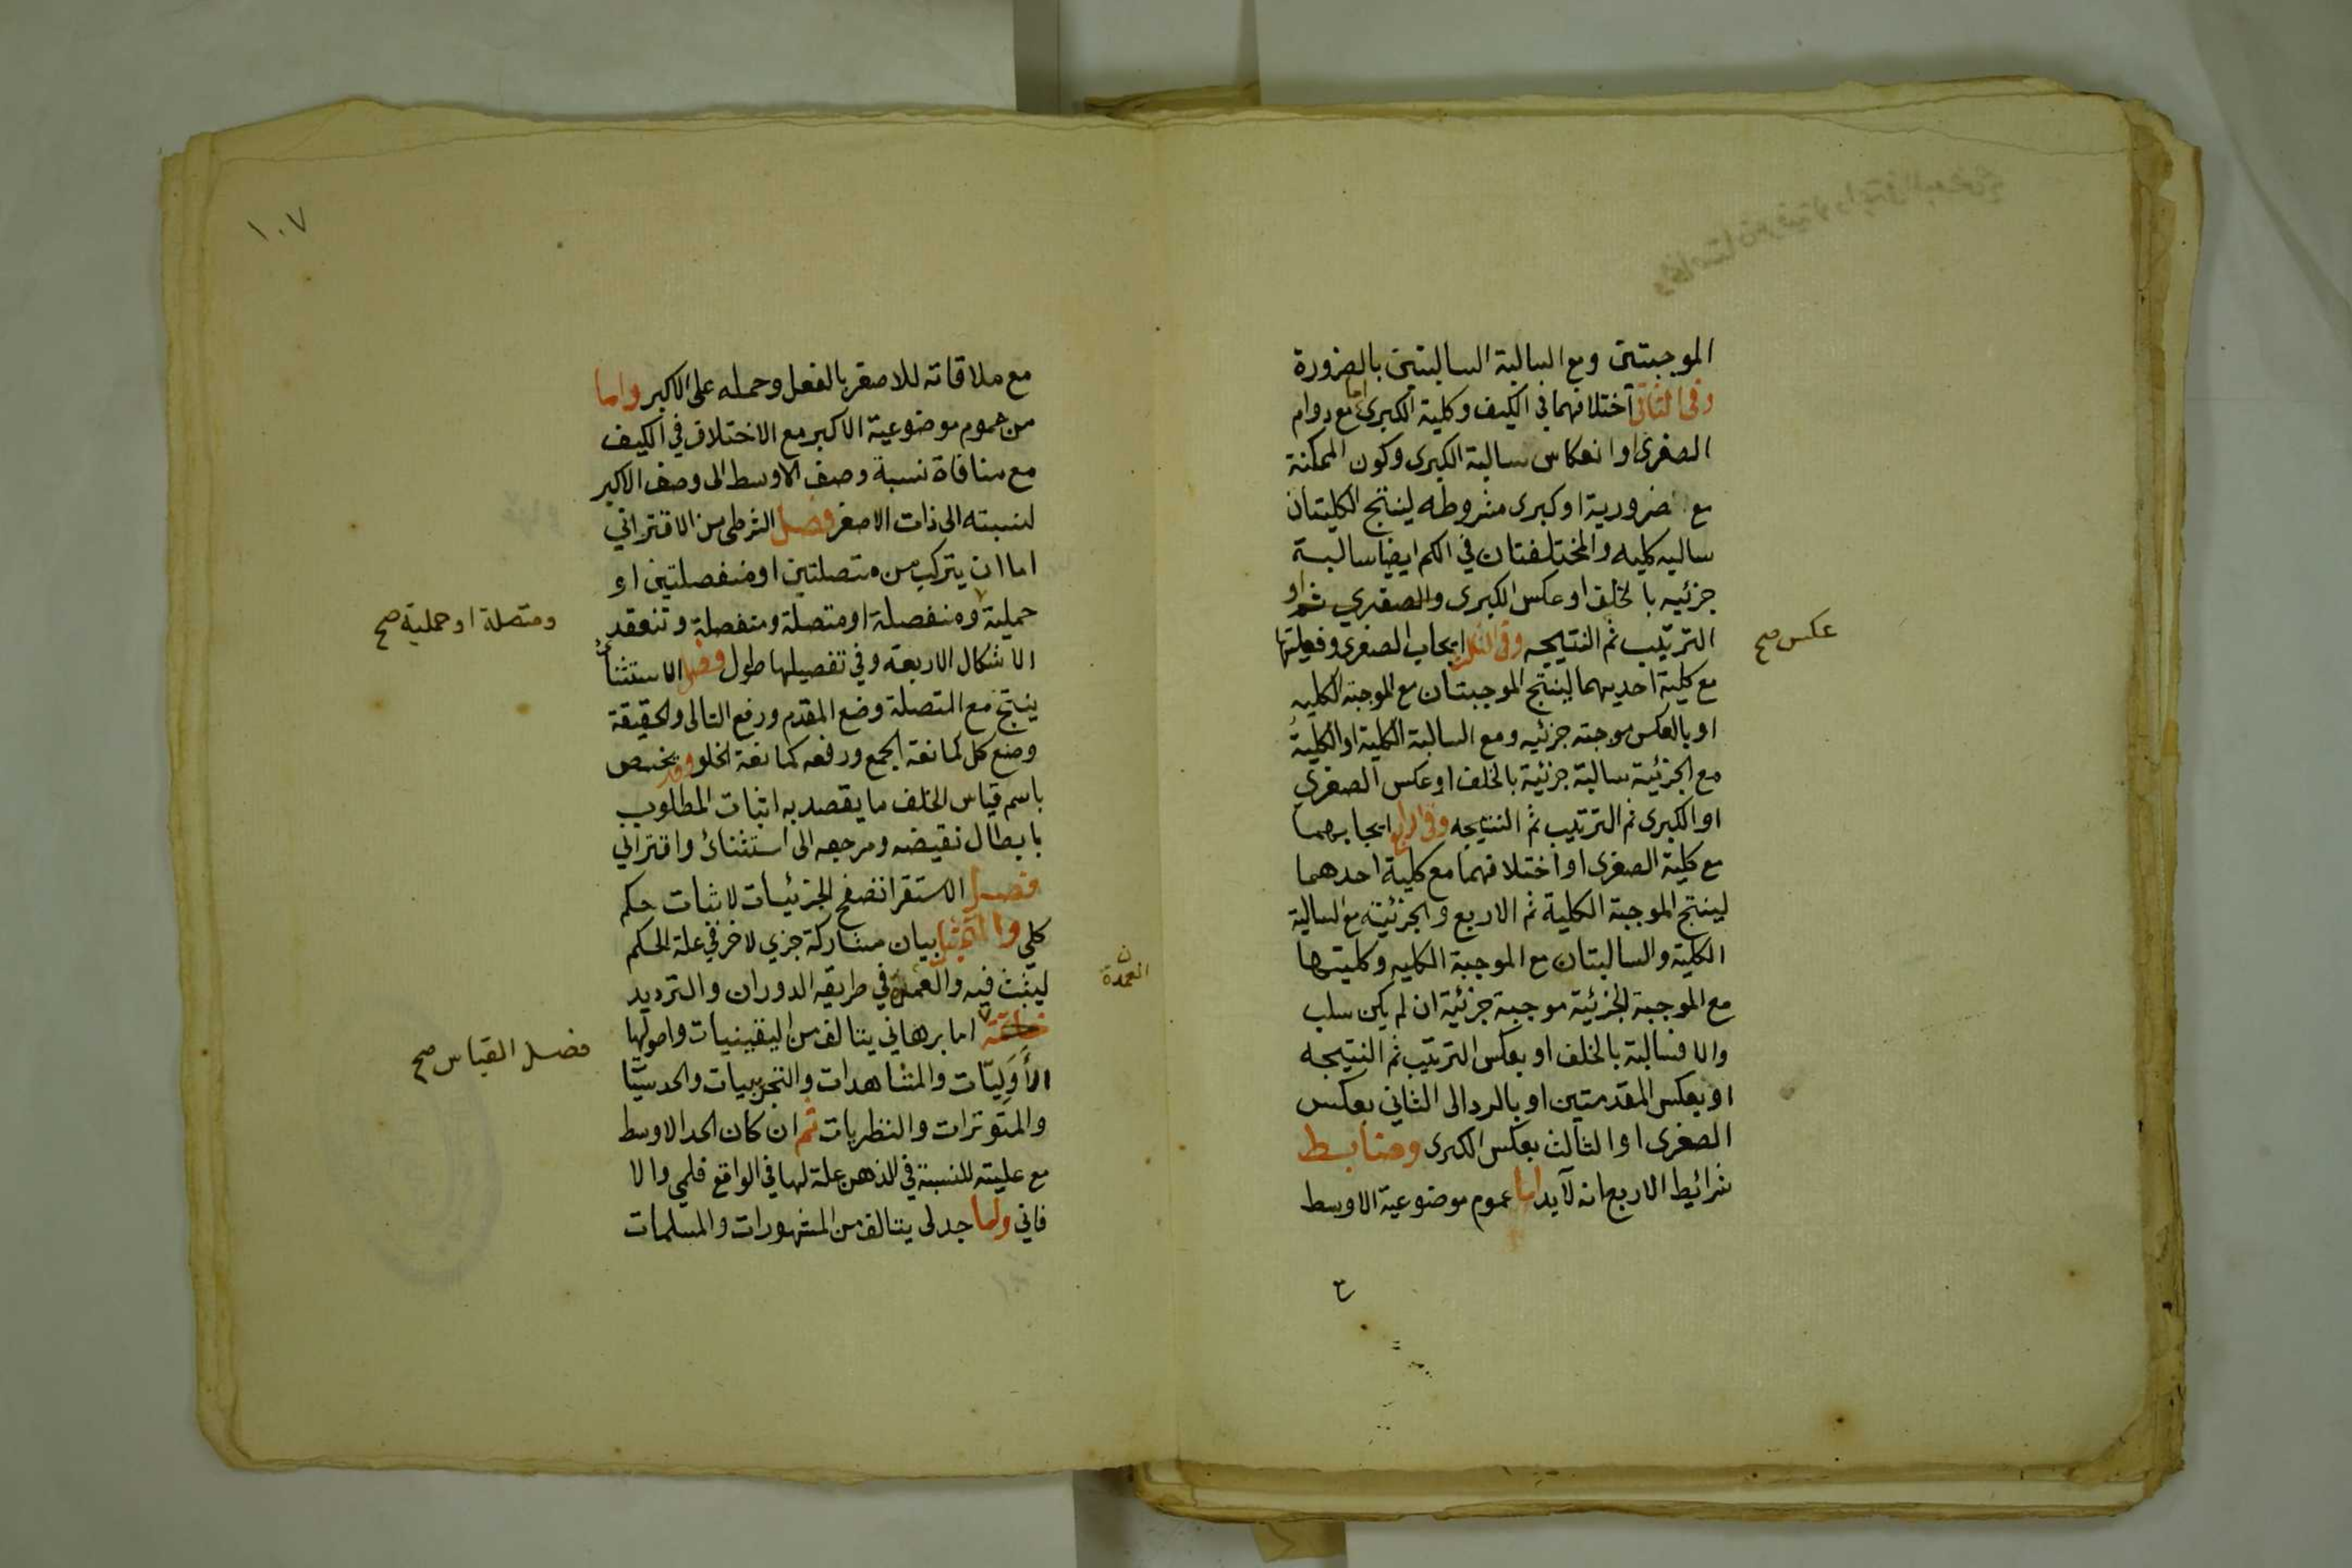 الموجبتين ومع السالبة السالبتين بالضرورة
وفي الثاني اختلافهما في الكيف وكلية الكبرى اما مع دوام
الصغرى او انعكاس سالبة الكبرى وكون الممكنة
مع ضرورية او كبرى مشروطه لينتج الكليتان
سالبه كليه والمختلفتان في الكم ايضا سالبة
جزئيه بالخلف او عكس الكبرى والصغرى ثم او
عكس صح
الترتيب ثم النتيجه وفي الثالث ايجاب الصغرى وفعليتها
مع كلية احديهما لينتج الموجبتان مع الموجبة الكليه
او بالعكس موجبته جزئيه ومع السالبة الكلية او الكلية
مع الجزئية سالبة جزئية بالخلف او عكس الصغرى
او الكبرى ثم الترتيب ثم النتيجه وفي الرابع ايجابهما
مع كلية الصغرى او اختلافهما مع كلية احدهما
لينتج الموجبة الكلية ثم الاربع والجزئية مع السالبة
الكلية والسالبتان مع الموجبة الكليه وكليتها
مع الموجبة الجزئية موجبة جزئية ان لم يكن سلب
والا فسالبة بالخلف او بعكس الترتيب ثم النتيجه
او بعكس المقدمتين او بالرد الى الثاني بعكس
الصغرى او الثالث بعكس الكبرى وضابط
شرائط الاربع انه لابد اما عموم موضوعية الاوسط
١٠٧
مع ملاقاته للاصغر بالفعل وحمله على الاكبر واما
من عموم موضوعية الاكبر مع الاختلاف في الكيف
مع منافاة نسبة وصف الاوسط الى وصف الاكبر
لنسبته الى ذات الاصغر فصل الشرطي من الاقتراني
اما ان يتركب من متصلتين او منفصلتين او
حملية ومنفصلة او متصلة ومنفصلة وتنعقد
ومتصلة او حملية صح
الاشكال الاربعة وفي تفصيلها طول فصل الاستثنائي
ينتج مع المتصلة وضع المقدم ورفع التالى والحقيقة
وضع كل كمانعة الجمع ورفعه كمانعة الخلو وقد يختص
باسم قياس الخلف ما يقصد به اثبات المطلوب
بابطال نقيضه ومرجعه الى استثنائ واقتراني
فصل الاستقرا تصفح الجزئيات لاثبات حكم
كلي والتمثيل بيان مشاركة جزي لاخر في علة الحكم
ليثبت فيه والعمدة في طريقه الدوران والترديد
العمدة ن
خاتمة اما برهاني يتالف من اليقينيات واصولها
فصل القياس صح
الأوليّات والمشاهدات والتجربيات والحدسيّا
والمتوترات والنظريات ثم ان كان الحد الاوسط
مع عليته للنسبة في الذهن علة لها في الواقع فلمي والا
فاني واما جدلى يتالف من المشهورات والمسلمات